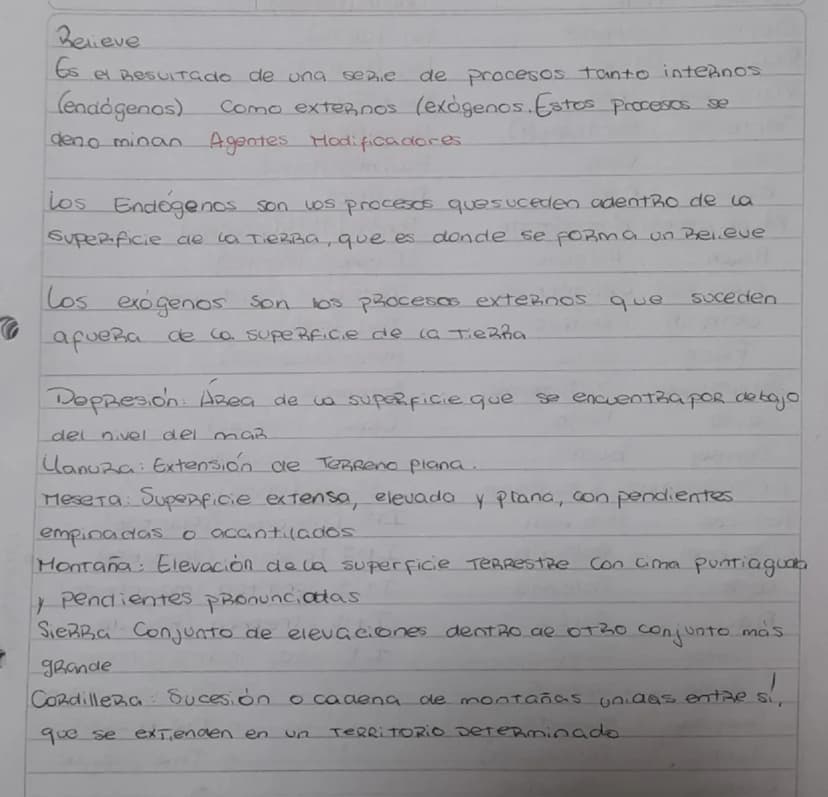 Relieve
Es el Resultado de una serie de procesos tanto internos
(endógenos) como externos (exógenos. Estos procesos se
denominan Agentes Modificadores
Los Endógenos son los procesos que suceden adentro de la
superficie de la Tierra, que es donde se forma un Relieve
Los exógenos son los procesos externos que suceden
afuera de la superficie de la Tierra
Depresión: Área de la superficie que se encuentra por debajo
del nivel del mar
Llanura: Extensión de Terreno plana.
Meseta: Superficie extensa, elevada y plana, con pendientes
empinadas o acantilados
Montaña: Elevación de la superficie Terrestre con cima puntiaguda
y pendientes pronunciadas
Sierra Conjunto de elevaciones dentro de otro conjunto más
grande
Cordillera: Sucesión o cadena de montañas unidas entre sí,
que se extienden en un Territorio Determinado